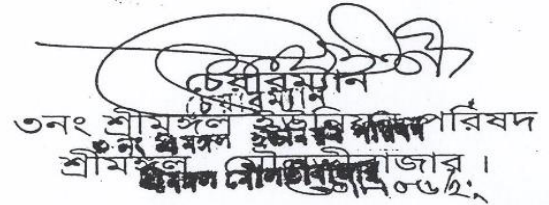 চেয়ারম্যান
(চেয়ারম্যান)
৩নং শ্রীমঙ্গল ইউনিয়ন পরিষদ
৩-নং শ্রীমঙ্গল ইউনিয়ন পরিষদ
শ্রীমঙ্গল মৌলভীবাজার ।
শ্রীমঙ্গল মৌলভীবাজার